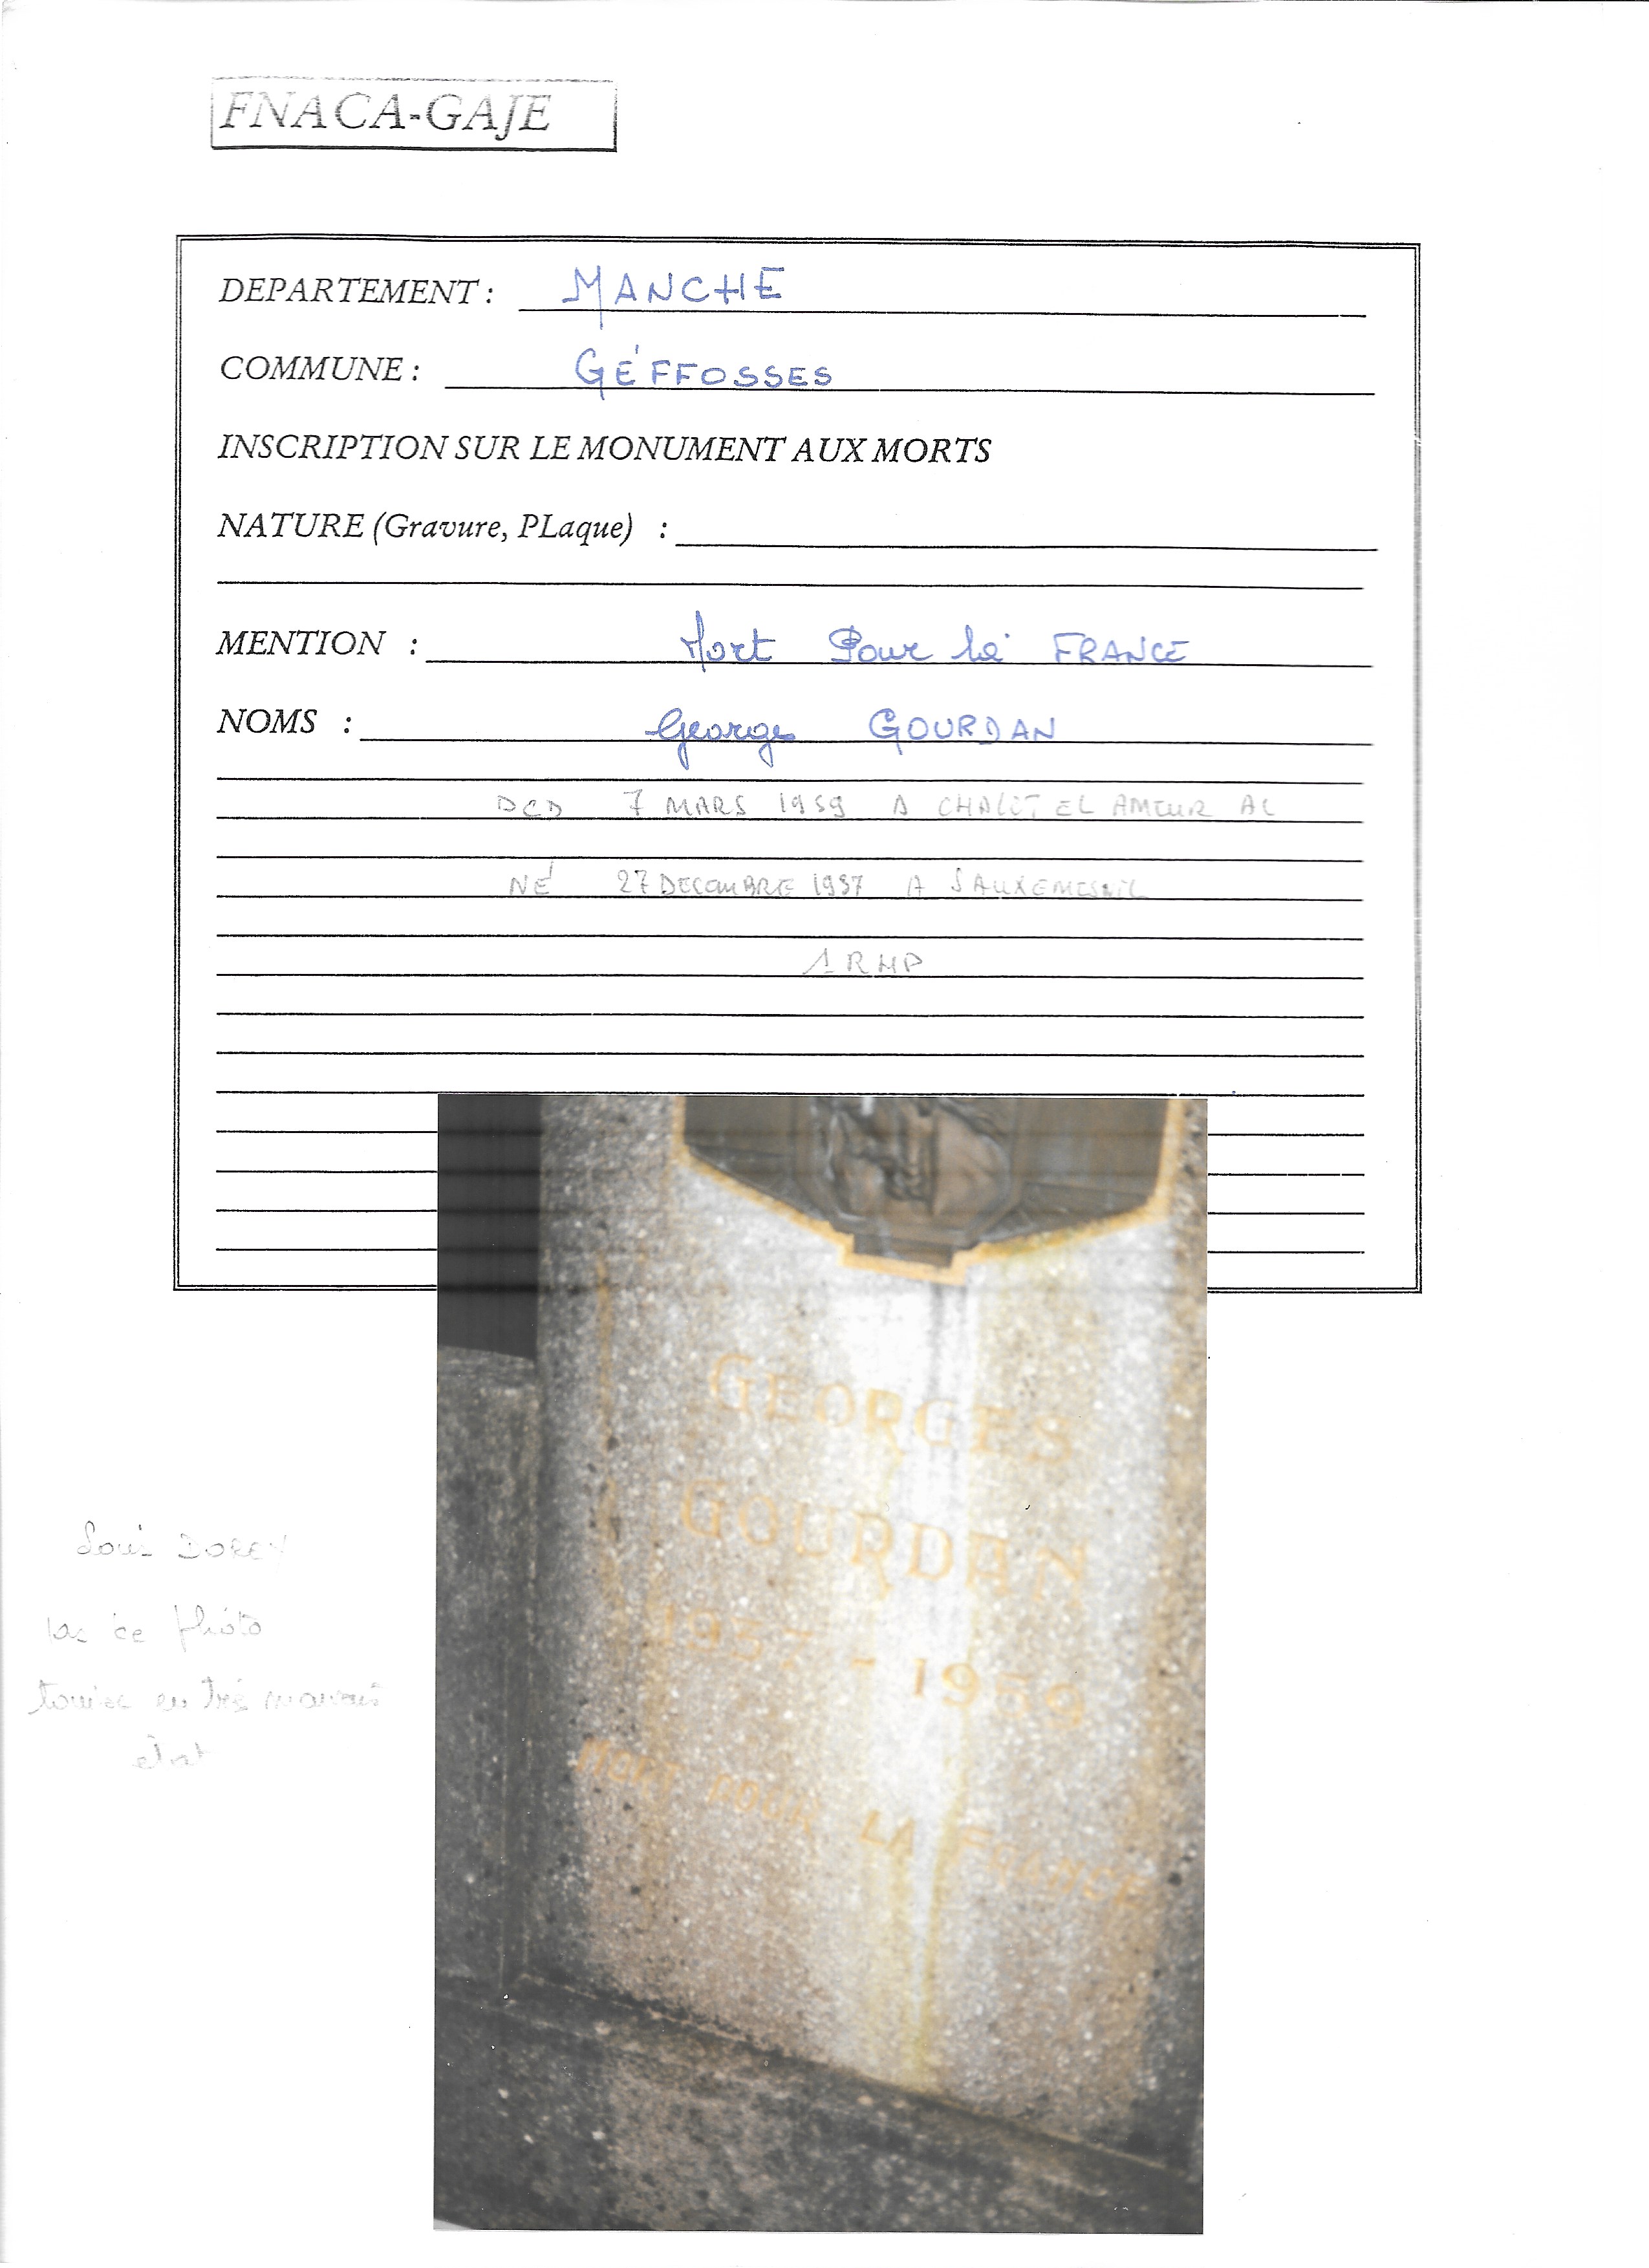 FNACA-GAJE
DEPARTEMENT : MANCHE
COMMUNE : GÉFFOSSES
INSCRIPTION SUR LE MONUMENT AUX MORTS
NATURE (Gravure, PLaque) :
MENTION : Mort Pour la FRANCE
NOMS : Georges GOURDAN
DCD 7 MARS 1959 A EL AMEUR AL
NÉ 27 DECEMBRE 1937 A SAUXEMESNIL
1 RHP
GEORGES
GOURDAN
1937 - 1959
MORT POUR LA FRANCE
Louis DOREY
ce photo
en trés mauvais
état